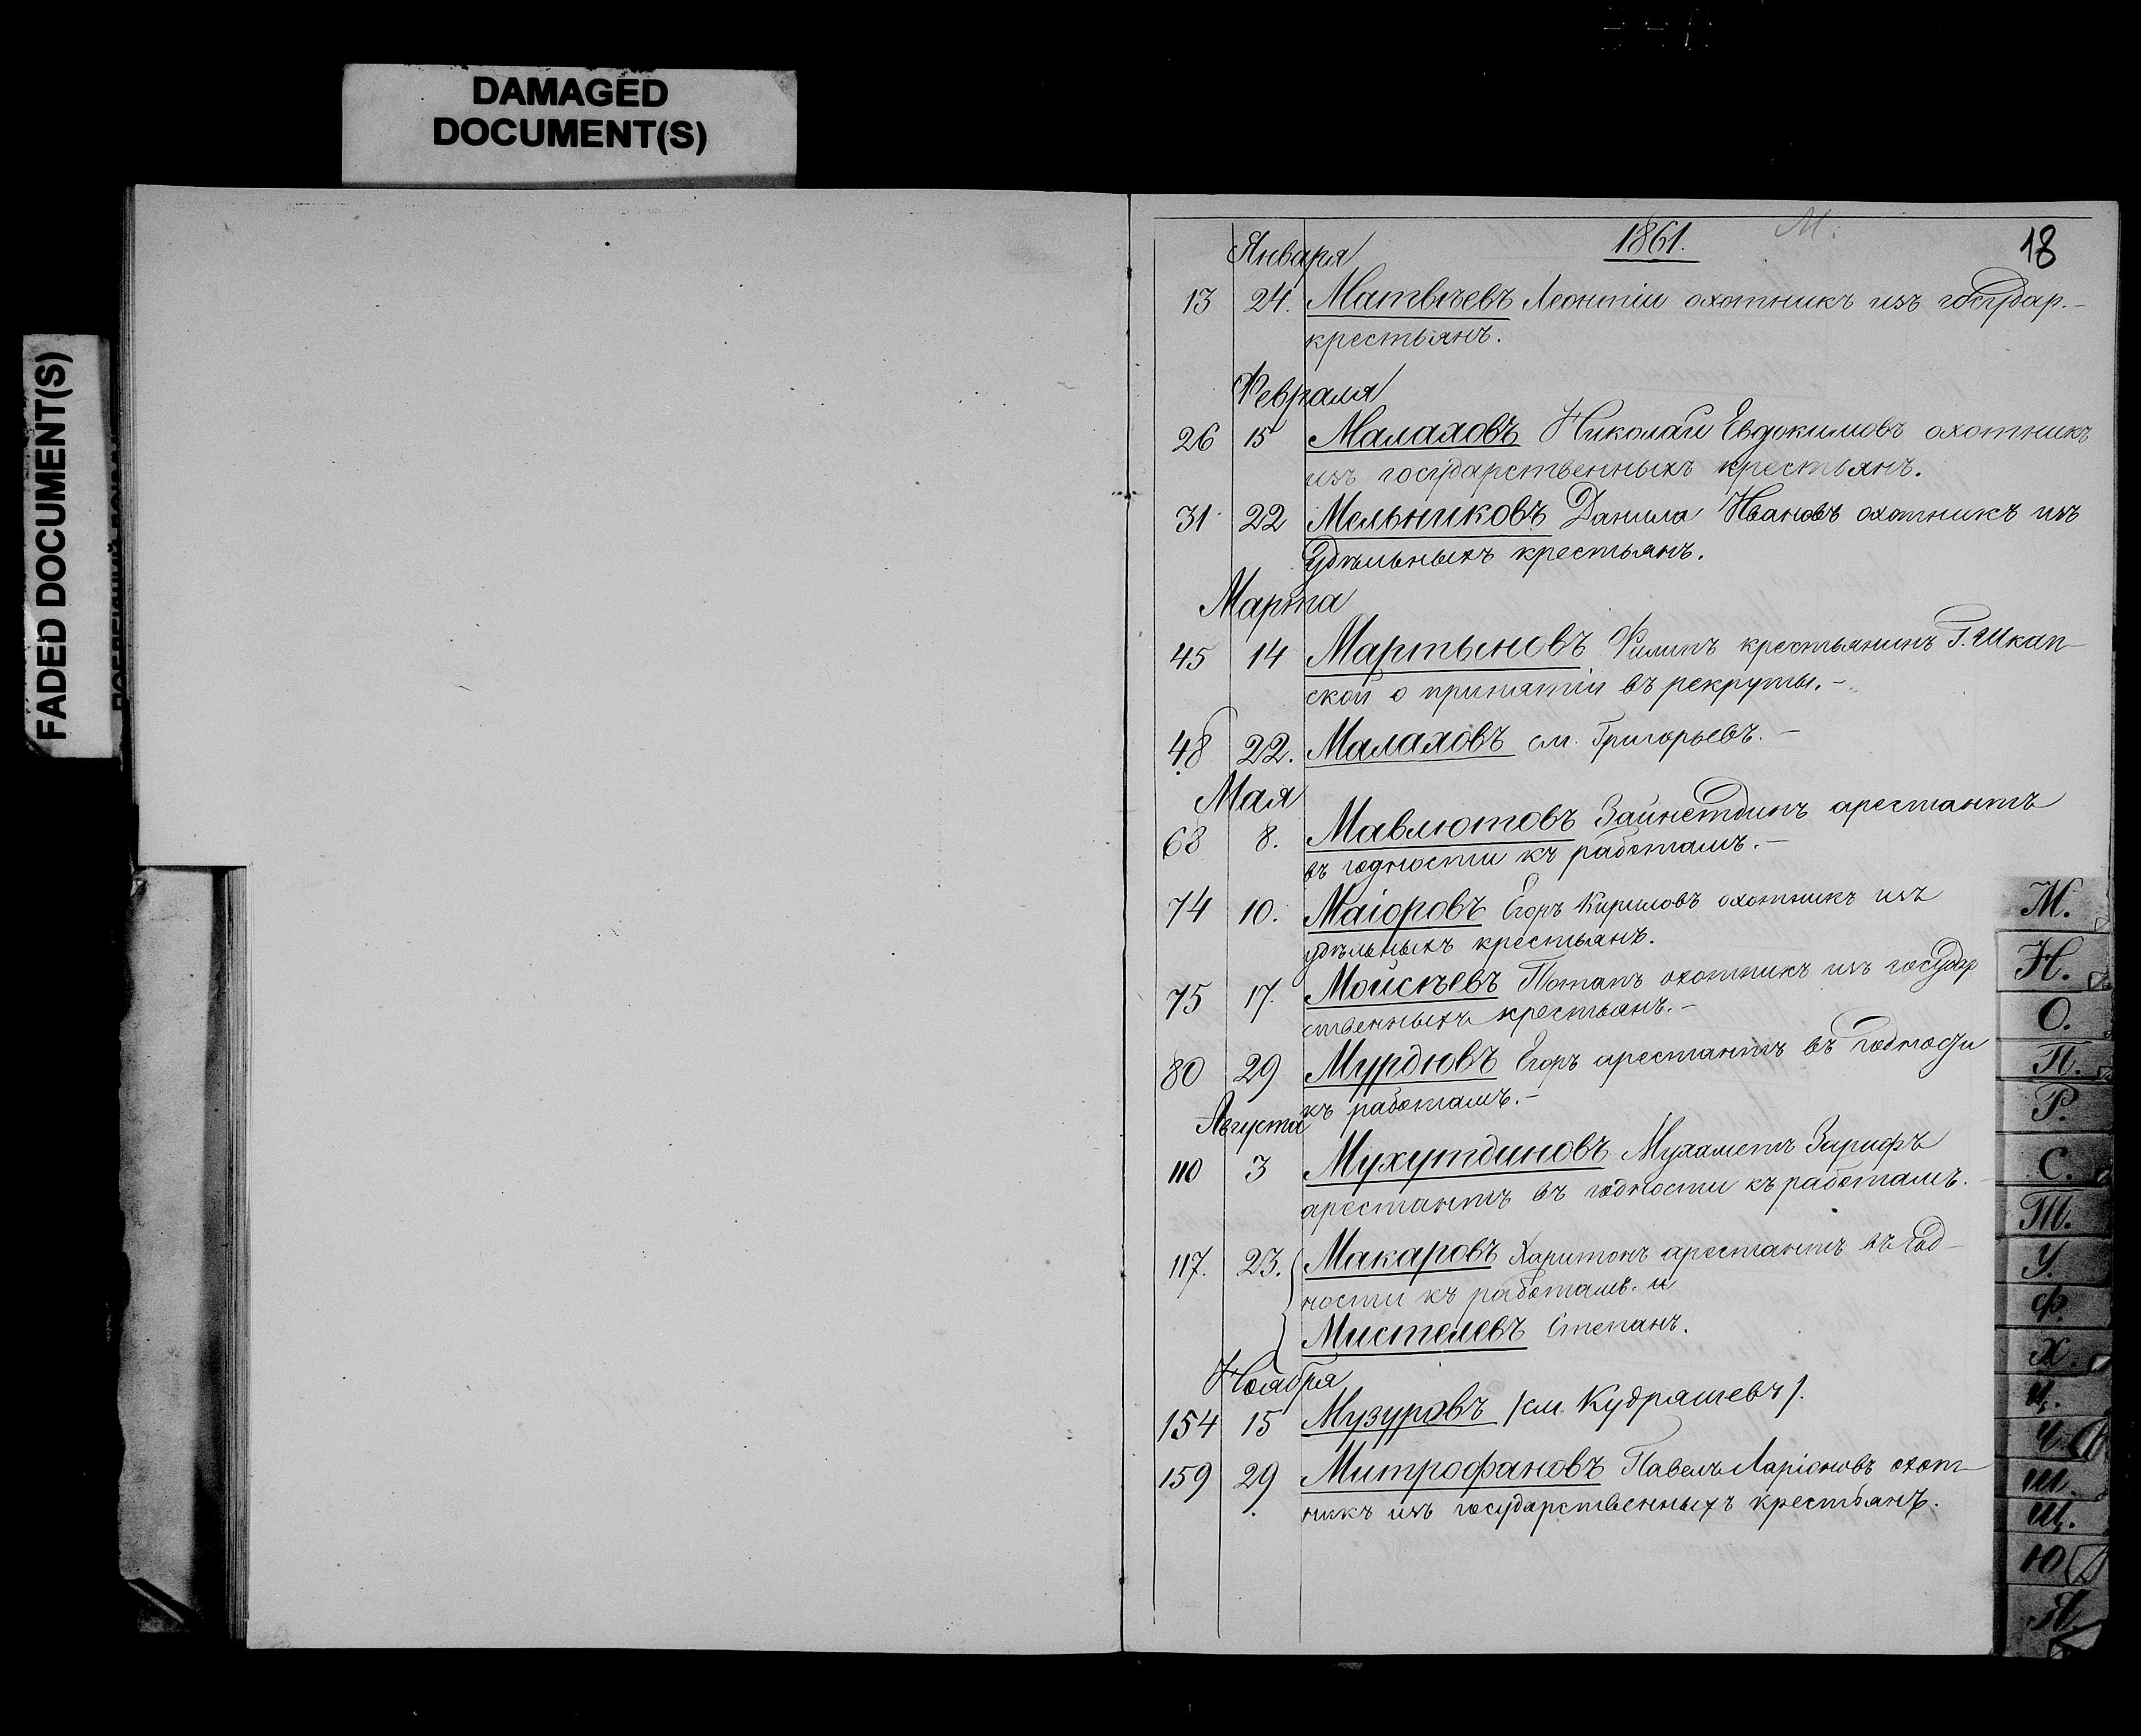 DAMAGED
DOCUMENT(S)
FADED DOCUMENT(S)
1861. М.
18
Января
13 24. Матвѣевъ Леонтій охотникъ изъ государ.-
крестьянъ.
Февраля
26 15 Малаховъ Николай Евдокимовъ охотникъ
изъ государственныхъ крестьянъ.
31 22 Мельниковъ Данила Ивановъ охотникъ изъ
удѣльныхъ крестьянъ.
Марта
45 14 Мартыновъ Филипъ крестьянинъ
ской о принятіи въ рекруты.-
48 22. Малаховъ см. Григорьевъ.-
Мая
68 8. Мавлютовъ Зайнетдинъ арестантъ
въ годности къ работамъ.-
74 10. Маіоровъ Егоръ Кириловъ охотникъ изъ
удѣльныхъ крестьянъ.
75 17. Мойсѣевъ Потапъ охотникъ изъ государ
ственныхъ крестьянъ.-
80 29 Мурдювъ Егоръ арестантъ въ годности
къ работамъ.-
Августа
110 3 Мухутдиновъ Мухаметъ Зарифъ
арестантъ въ годности къ работамъ.
117. 23. Макаровъ Харитонъ арестантъ въ год-
ности къ работамъ. и
Мистелевъ Степанъ.
Ноября
154 15 Музуровъ /см. Кудряшевъ/.
159 29 Митрофановъ Павелъ Ларіоновъ охот-
никъ изъ государственныхъ крестьянъ.
М.
Н.
О.
П.
Р.
С.
Т.
У.
Ф.
Х.
Ц.
Ч.
Ш.
Щ.
Ю
Я.